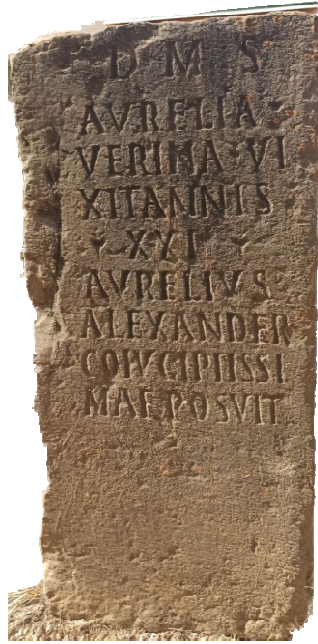 D M S
AVRELIA
VERINA VI
XITANNIS
XXI
AVRELIVS
ALEXANDER
COIVGIPIISSI
MAE POSVIT